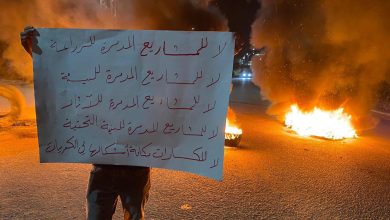 لا للمشاريع المدمرة للزراعة
لا للمشاريع المدمرة للبيئة
لا للمشاريع المدمرة للآثار
لا للمشاريع المدمرة للبنية التحتية
لا للكسارات بكافة أشكالها في